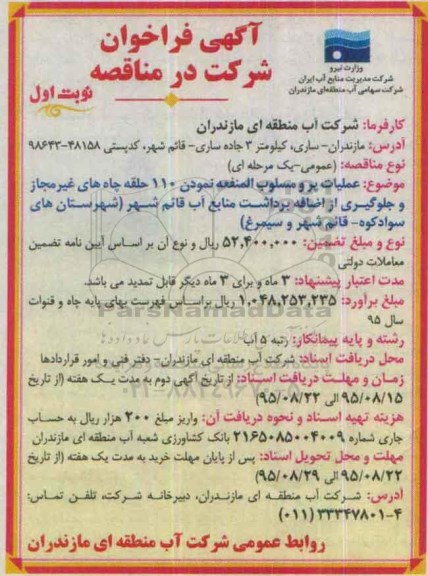 آگهی فراخوان
شرکت در مناقصه
نوبت اول
وزارت نیرو
شرکت مدیریت منابع آب ایران
شرکت سهامی آب منطقه‌ای مازندران
کارفرما: شرکت آب منطقه ای مازندران
آدرس: مازندران- ساری، کیلومتر ۳ جاده ساری- قائم شهر، کدپستی ۴۸۱۵۸-۹۸۶۴۳
نوع مناقصه: (عمومی-یک مرحله ای)
موضوع: عملیات پر و مسلوب المنفعه نمودن ۱۱۰ حلقه چاه های غیرمجاز
و جلوگیری از اضافه برداشت منابع آب قائم شهر (شهرستان های
سوادکوه- قائم شهر و سیمرغ)
نوع و مبلغ تضمین: ۵۲,۴۰۰,۰۰۰ ریال و نوع آن بر اساس آیین نامه تضمین
معاملات دولتی
مدت اعتبار پیشنهاد: ۳ ماه و برای ۳ ماه دیگر قابل تمدید می باشد.
مبلغ برآورد: ۱,۰۴۸,۲۵۳,۲۳۵ ریال براساس فهرست بهای پایه چاه و قنوات
سال ۹۵
رشته و پایه پیمانکار: رتبه ۵ آب
محل دریافت اسناد: شرکت آب منطقه ای مازندران- دفتر فنی و امور قراردادها
زمان و مهلت دریافت اسناد: از تاریخ آگهی دوم به مدت یک هفته (از تاریخ
۹۵/۰۸/۱۵ الی ۹۵/۰۸/۲۲)
هزینه تهیه اسناد و نحوه دریافت آن: واریز مبلغ ۲۰۰ هزار ریال به حساب
جاری شماره ۲۱۶۵۰۸۵۰۰۴۰۰۹ بانک کشاورزی شعبه آب منطقه ای مازندران
مهلت و محل تحویل اسناد: پس از پایان مهلت خرید به مدت یک هفته (از تاریخ
۹۵/۰۸/۲۲ الی ۹۵/۰۸/۲۹)
آدرس: شرکت آب منطقه ای مازندران، دبیرخانه شرکت، تلفن تماس:
۴-۳۳۳۴۷۸۰۱ (۰۱۱)
روابط عمومی شرکت آب منطقه ای مازندران
ParsNamadData